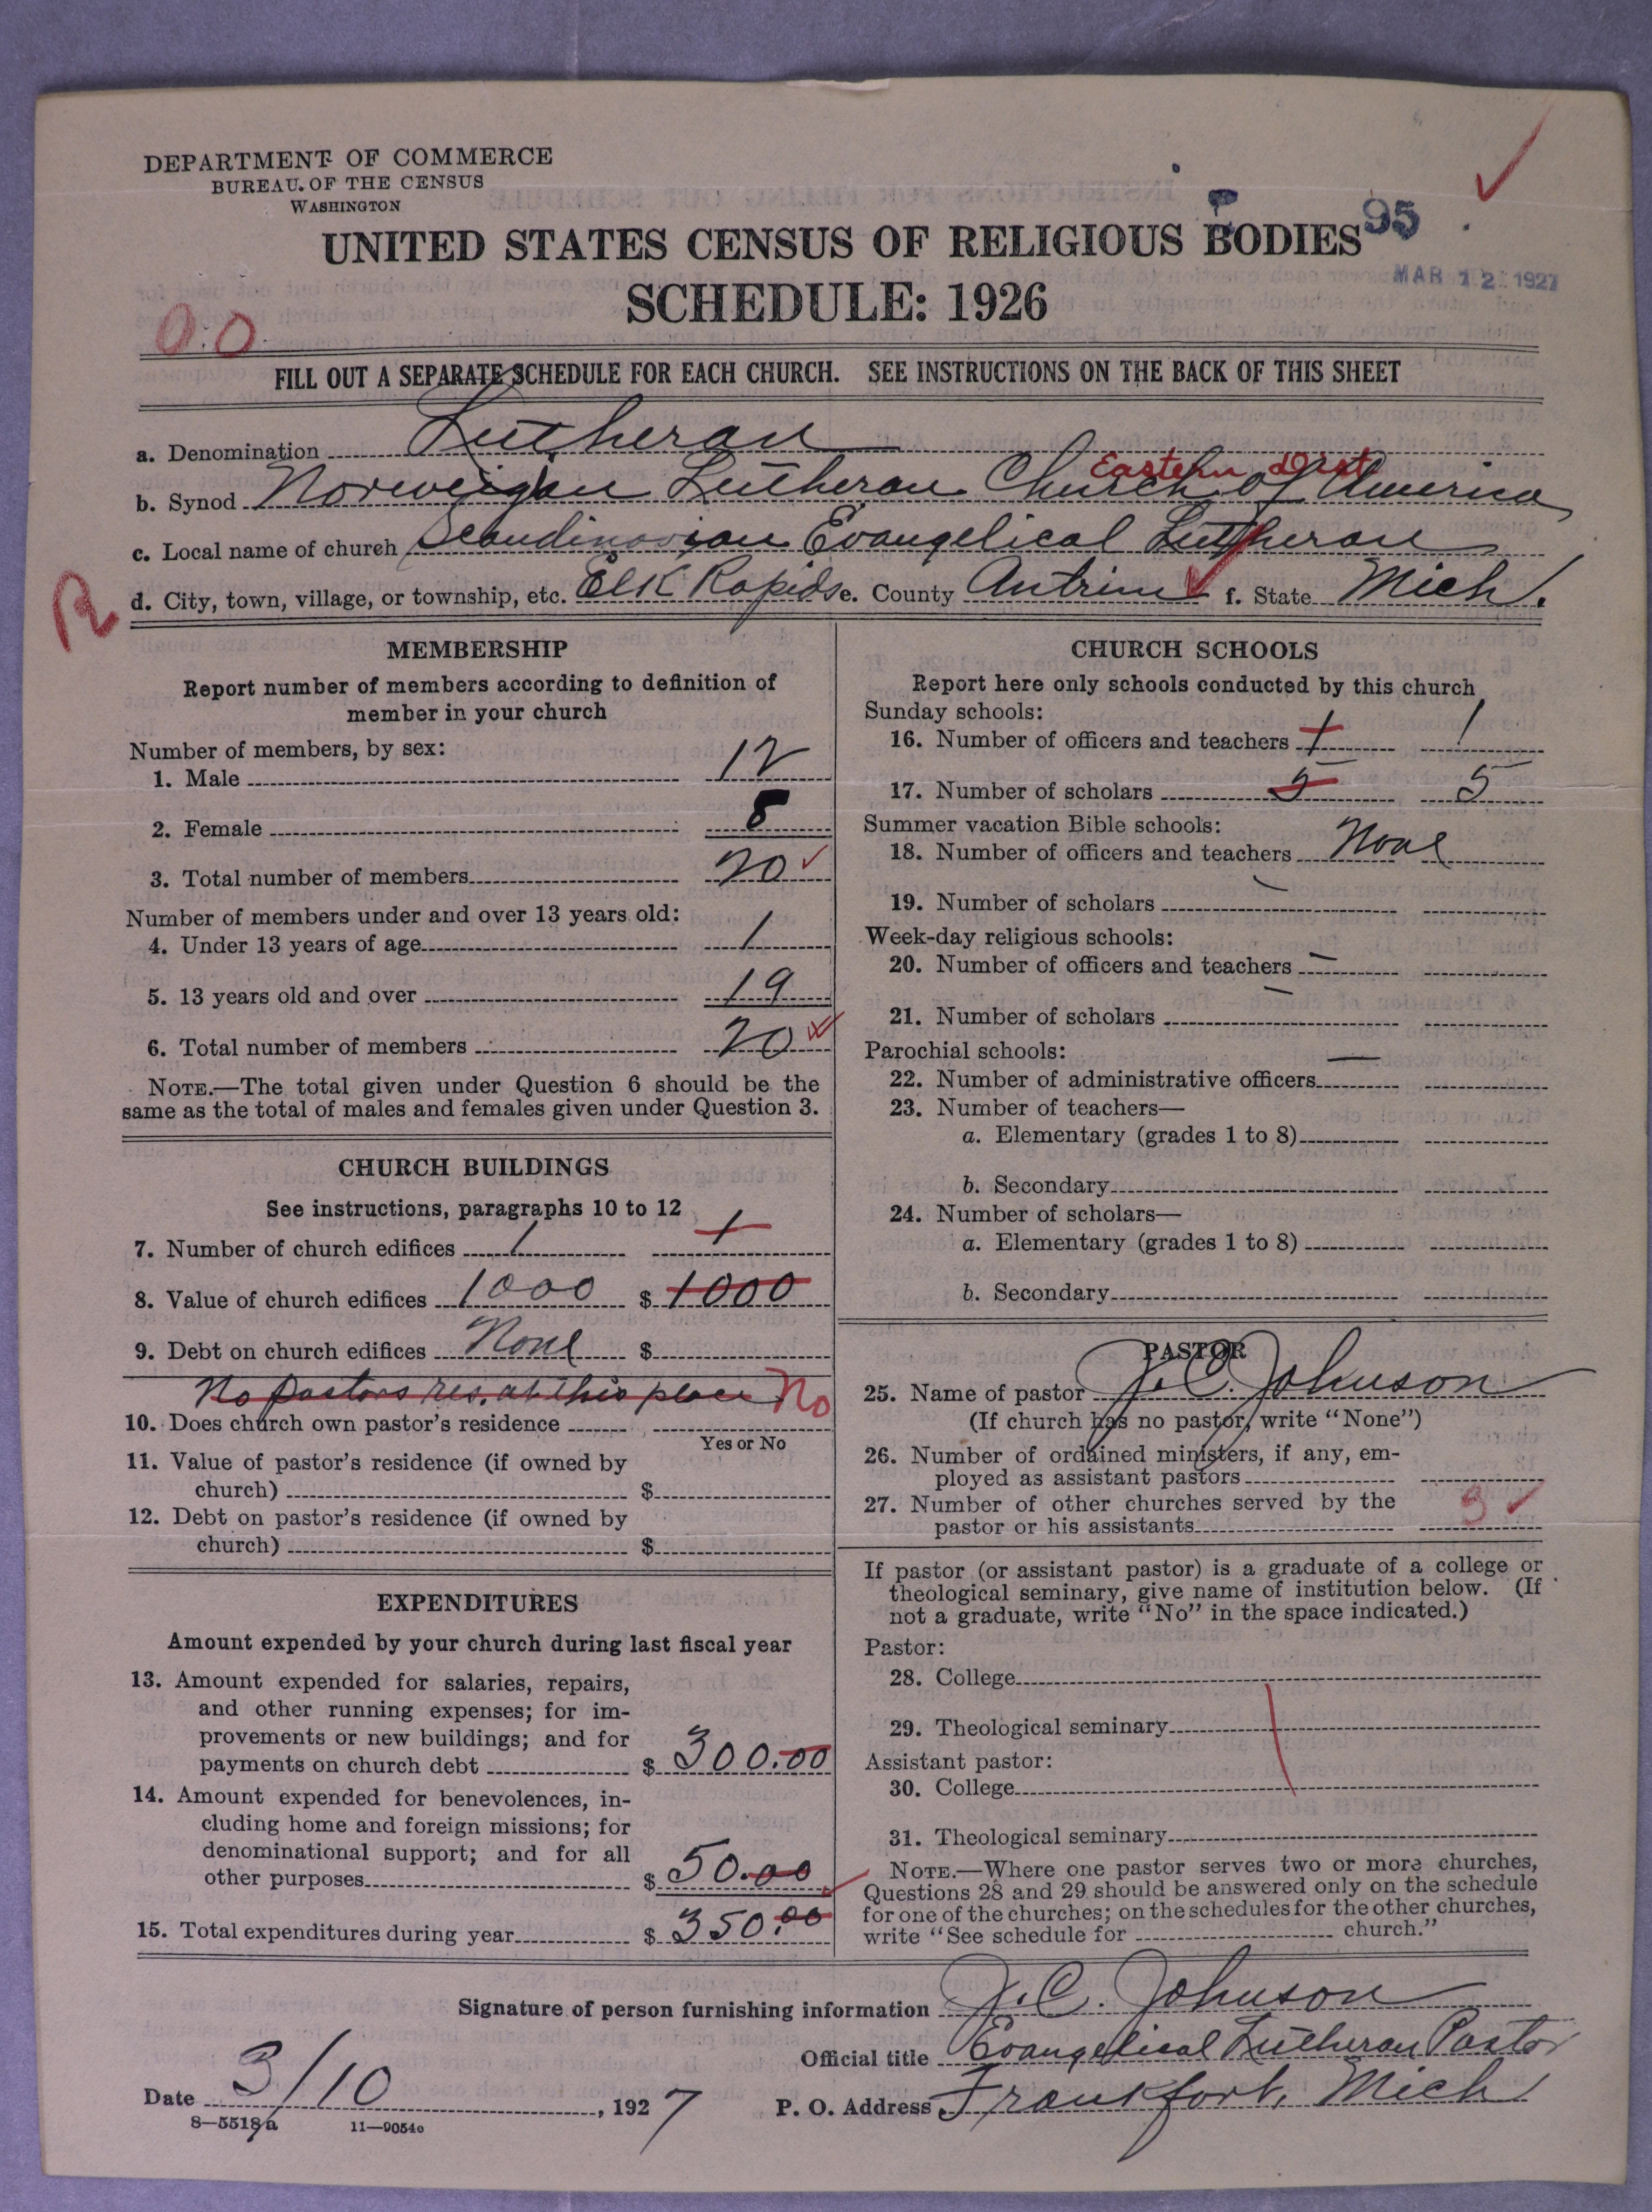 DEPARTMENT OF COMMERCE
BUREAU OF THE CENSUS
WASHINGTON
UNITED STATES CENSUS OF RELIGIOUS BODIES 95
MAR 12 1927
SCHEDULE: 1926
0.0
FILL OUT A SEPARATE SCHEDULE FOR EACH CHURCH. SEE INSTRUCTIONS ON THE BACK OF THIS SHEET
a. Denomination Lutheran
Eastern Dist
b. Synod Norweigian Lutheran Church of America
c. Local name of church Scandinavian Evangelical Lutheran
R d. City, town, village, or township, etc. Elk Rapids e. County Antrim f. State Mich.
MEMBERSHIP
Report number of members according to definition of
member in your church
Number of members, by sex:
1. Male 12
2. Female 8
3. Total number of members 20
Number of members under and over 13 years old:
4. Under 13 years of age 1
5. 13 years old and over 19
6. Total number of members 20
NOTE.—The total given under Question 6 should be the
same as the total of males and females given under Question 3.
CHURCH BUILDINGS
See instructions, paragraphs 10 to 12
7. Number of church edifices 1 1
8. Value of church edifices 1000 $ 1000
9. Debt on church edifices None $
No pastors res. at this place No
10. Does church own pastor's residence
Yes or No
11. Value of pastor's residence (if owned by
church) $
12. Debt on pastor's residence (if owned by
church) $
EXPENDITURES
Amount expended by your church during last fiscal year
13. Amount expended for salaries, repairs,
and other running expenses; for im-
provements or new buildings; and for
payments on church debt $ 300.00
14. Amount expended for benevolences, in-
cluding home and foreign missions; for
denominational support; and for all
other purposes $ 50.00
15. Total expenditures during year $ 350.00
CHURCH SCHOOLS
Report here only schools conducted by this church
Sunday schools:
16. Number of officers and teachers 1 1
17. Number of scholars 5 5
Summer vacation Bible schools:
18. Number of officers and teachers None
19. Number of scholars —
Week-day religious schools:
20. Number of officers and teachers —
21. Number of scholars —
Parochial schools: —
22. Number of administrative officers
23. Number of teachers—
a. Elementary (grades 1 to 8)
b. Secondary
24. Number of scholars—
a. Elementary (grades 1 to 8)
b. Secondary
PASTOR
25. Name of pastor J. C. Johnson
(If church has no pastor, write "None")
26. Number of ordained ministers, if any, em-
ployed as assistant pastors
27. Number of other churches served by the
pastor or his assistants 3
If pastor (or assistant pastor) is a graduate of a college or
theological seminary, give name of institution below. (If
not a graduate, write "No" in the space indicated.)
Pastor:
28. College
29. Theological seminary
Assistant pastor:
30. College
31. Theological seminary
NOTE.—Where one pastor serves two or more churches,
Questions 28 and 29 should be answered only on the schedule
for one of the churches; on the schedules for the other churches,
write "See schedule for church."
Signature of person furnishing information J. C. Johnson
Official title Evangelical Lutheran Pastor
Date 3/10, 1927 P. O. Address Frankfort, Mich
8—5518a 11—9054